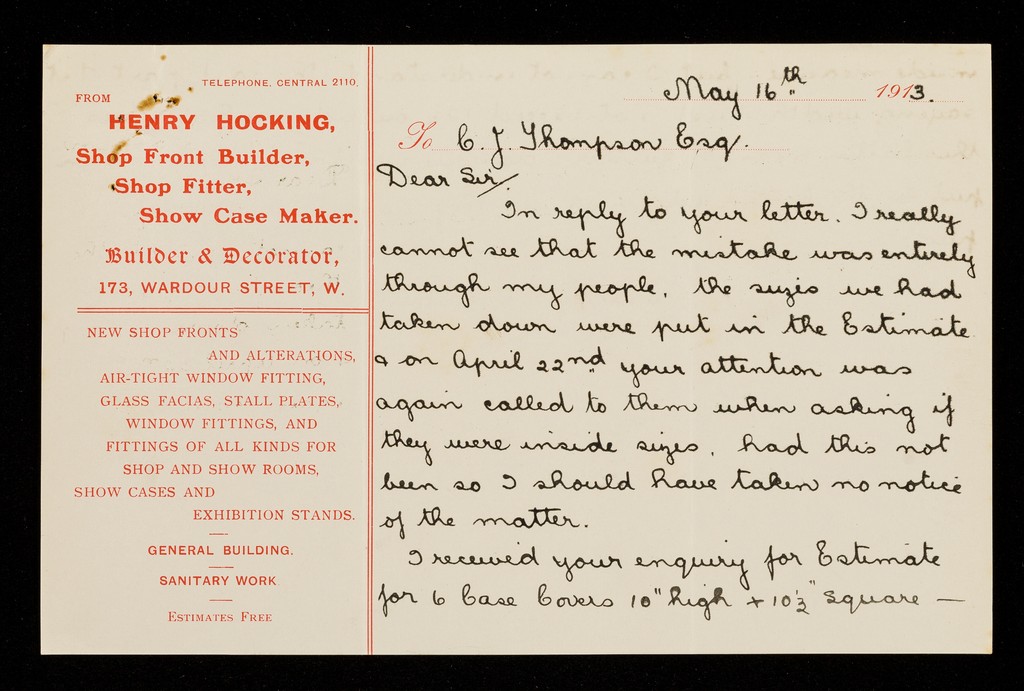 TELEPHONE, CENTRAL 2110.
FROM
HENRY HOCKING,
Shop Front Builder,
Shop Fitter,
Show Case Maker.
Builder & Decorator,
173, WARDOUR STREET, W.
NEW SHOP FRONTS
AND ALTERATIONS,
AIR-TIGHT WINDOW FITTING,
GLASS FACIAS, STALL PLATES,
WINDOW FITTINGS, AND
FITTINGS OF ALL KINDS FOR
SHOP AND SHOW ROOMS,
SHOW CASES AND
EXHIBITION STANDS.
GENERAL BUILDING.
SANITARY WORK
ESTIMATES FREE
May 16th 1913.
To C. J. Thompson Esq.
Dear Sir/
In reply to your letter. I really
cannot see that the mistake was entirely
through my people, the sizes we had
taken down were put in the Estimate
& on April 22nd your attention was
again called to them when asking if
they were inside sizes, had this not
been so I should have taken no notice
of the matter.
I received your enquiry for Estimate
for 6 Case Covers 10" high + 10½" square —